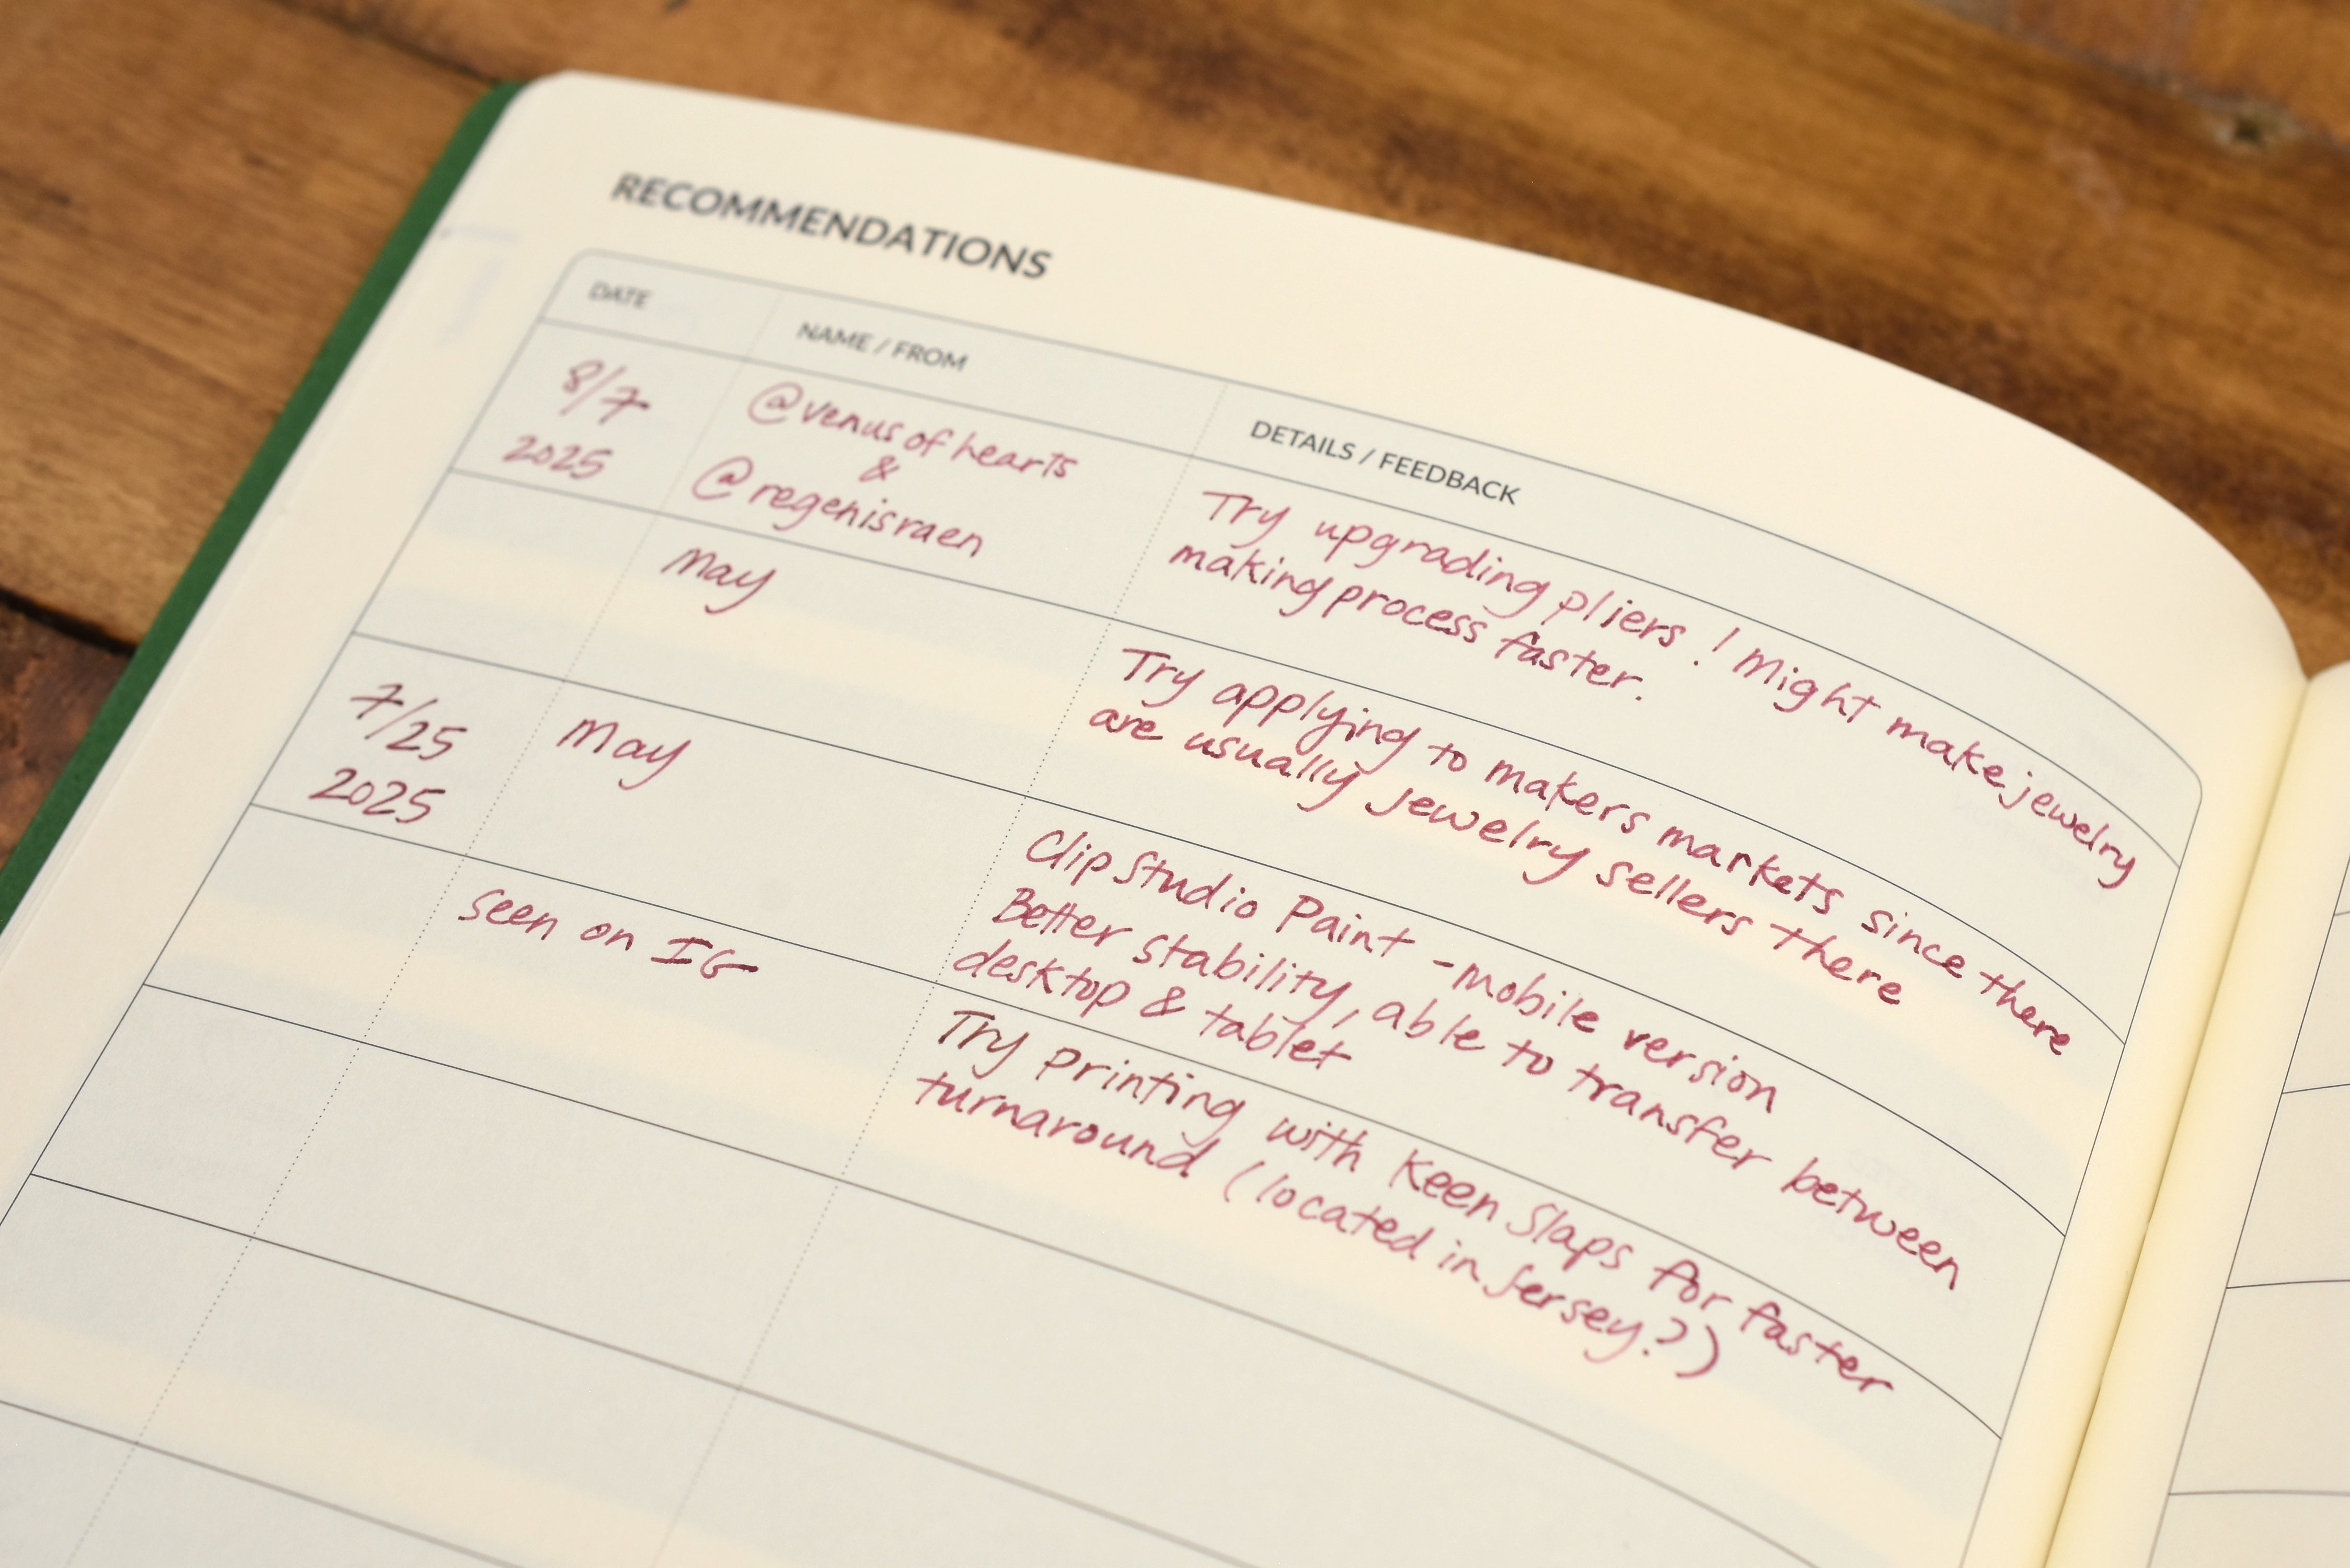 RECOMMENDATIONS
DATE
NAME / FROM
DETAILS / FEEDBACK
8/7
2025
@venusofhearts
&
@regenisraen
Try upgrading pliers! Might make jewelry
making process faster.
May
Try applying to makers markets since there
are usually jewelry sellers there
7/25
2025
May
Clip Studio Paint - mobile version
Better stability, able to transfer between
desktop & tablet
seen on IG
Try printing with Keen Slaps for faster
turnaround (located in Jersey?)